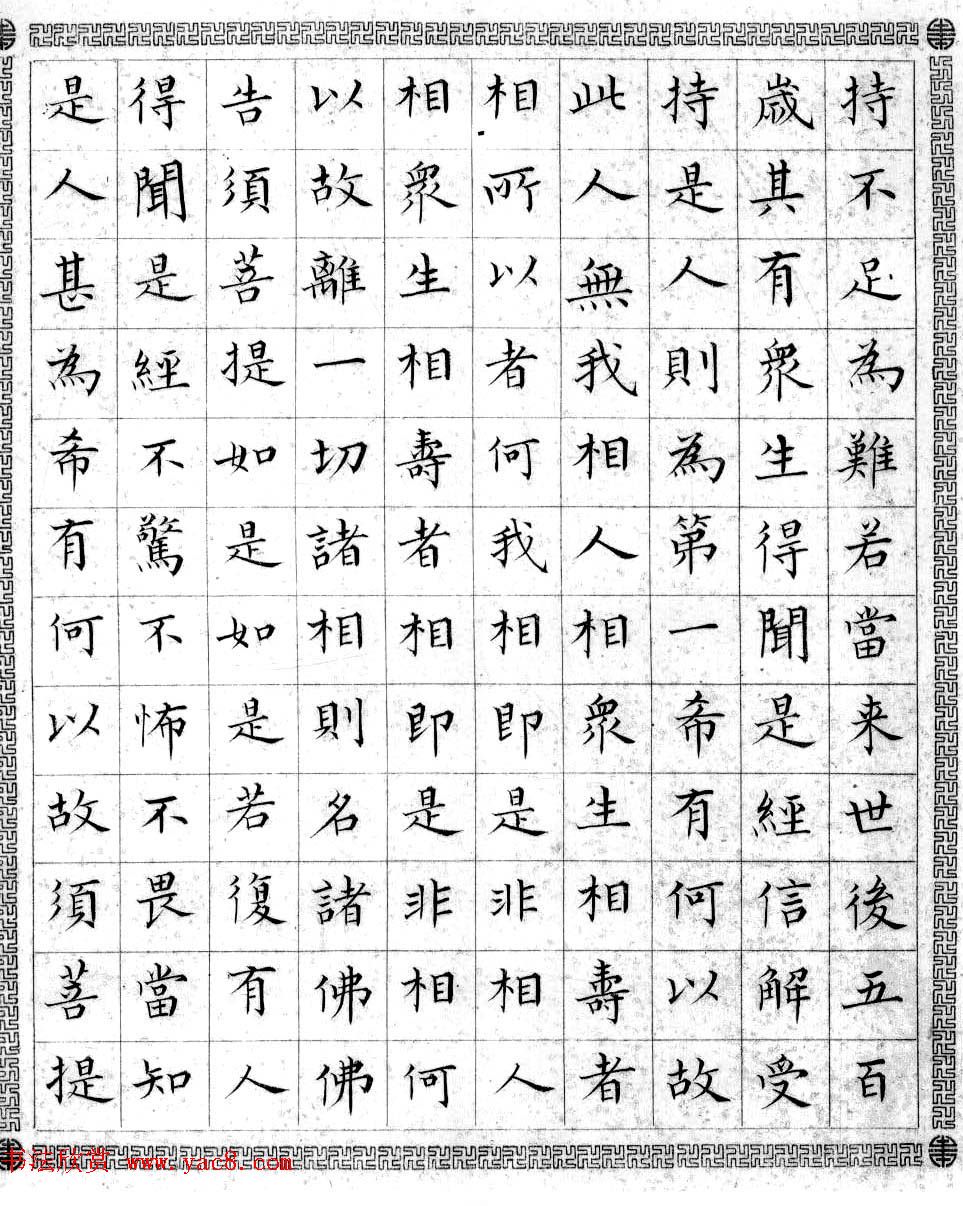 持不足為難若當来世後五百
歲其有衆生得聞是經信解受
持是人則為第一希有何以故
此人無我相人相衆生相壽者
相所以者何我相即是非相人
相衆生相壽者相即是非相何
以故離一切諸相則名諸佛佛
告須菩提如是如是若復有人
得聞是經不驚不怖不畏當知
是人甚為希有何以故須菩提
书法欣赏 www.yac8.com